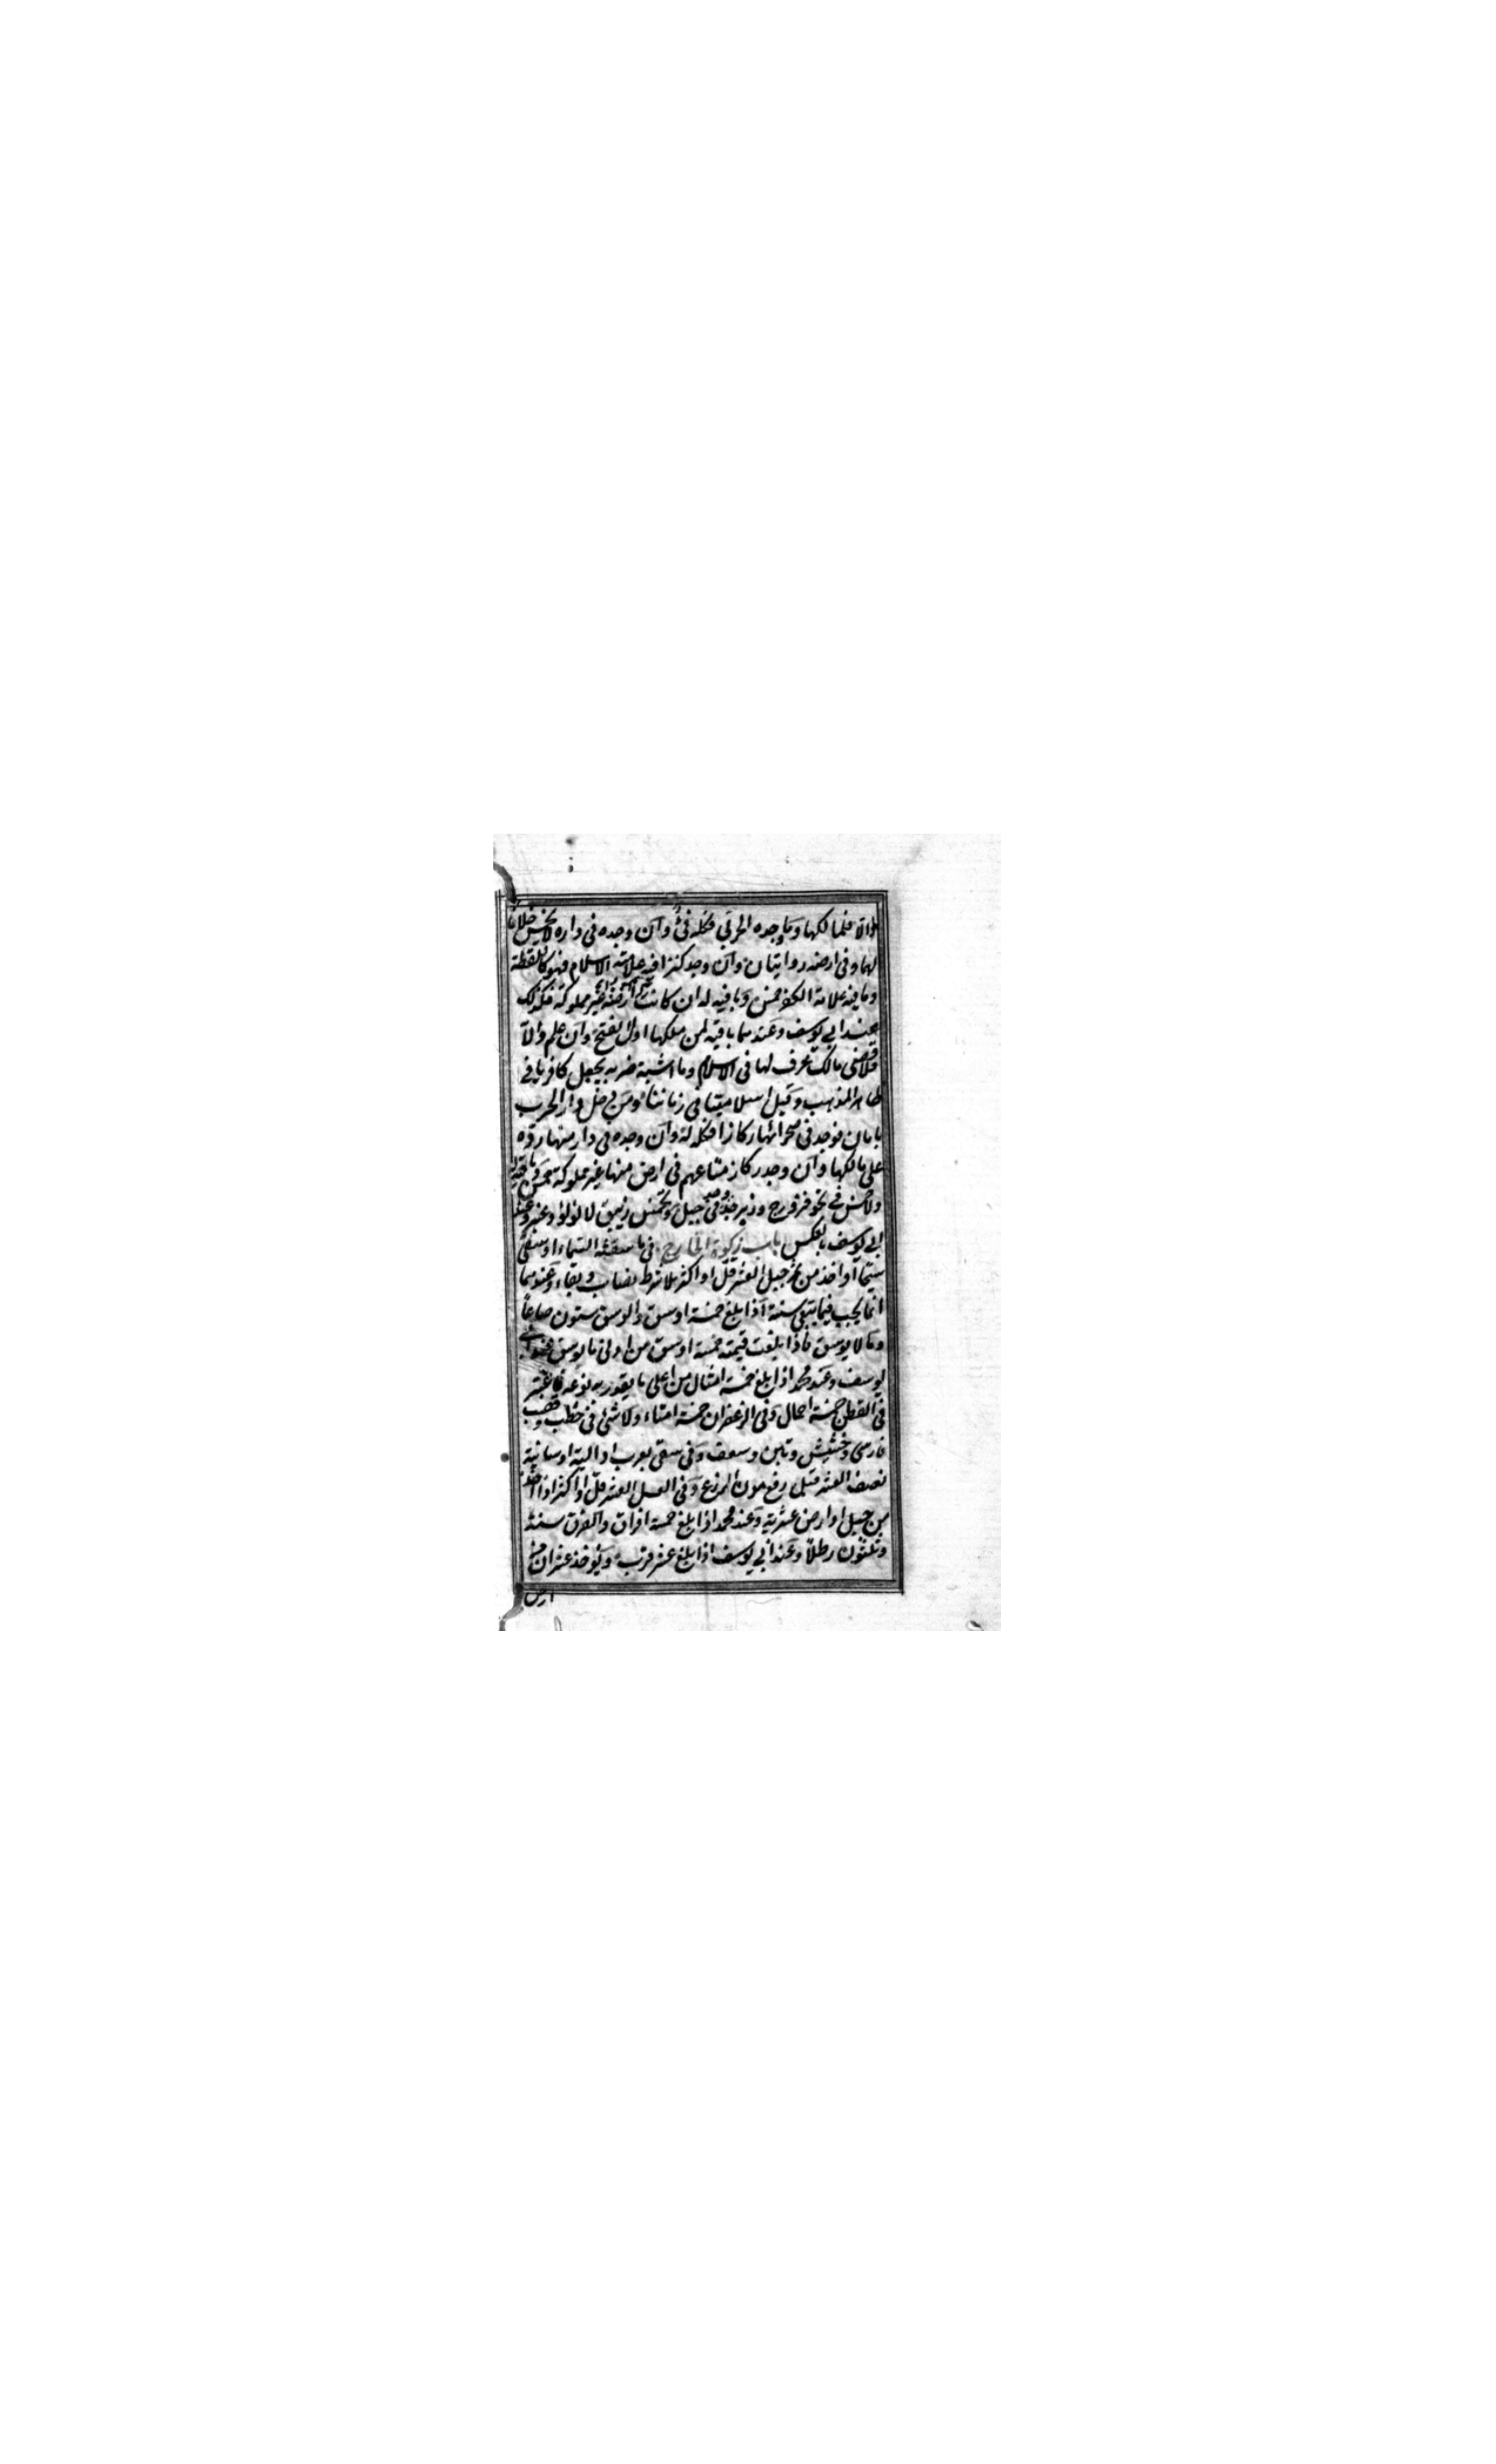 والا فلمالكها وما وجده الحربي فكله فئ وان وجده في داره لا يخمس خلافا
لهما وفي ارضه روايتان وان وجد كنزا فيه علامة الاسلام فهو كاللقطة
وما فيه علامة الكفر خمس وباقيه له ان كانت ارضه غير مملوكة فكذلك
عند ابي يوسف وعندهما باقيه لمن ملكها اول الفتح وان علم والا
فلاقصى مالك عرف لها في الاسلام وما اشتبه ضربه يجعل كافريا في
ظاهر المذهب وقيل اسلاميتا في زماننا ومن دخل دار الحرب
بامان فوجد في صحرائها ركازا فكله له وان وجده في دار منها رده
على مالكها وان وجد ركاز متاعهم في ارض منها غير مملوكة خمس وباقيه له
ولا خمس في نحو فيروزج وزبرجد وجد في جبل ويخمس زئبق لا لؤلؤ وعنبر وعند
ابي يوسف بالعكس باب زكوة الخارج في ما سقته السماء او سقي
سيحا او اخذ من ثمر جبل العشر قل او اكثر بلا شرط نصاب وبقاء وعندهما
انما يجب فيما يبقى سنة اذا بلغ خمسة اوسق والوسق ستون صاعا
وما لا يوسق فاذا بلغت قيمته خمسة اوسق من ادنى ما يوسق عند ابي
يوسف وعند محمد اذا بلغ خمسة امثال من اعلى ما يقدر به نوعه فاعتبر
في القطن خمسة احمال وفي الزعفران خمسة امناء ولا شئ في حطب وقصب
فارسي وحشيش وتبن وسعف وفي سقي بغرب او دالية او سانية
نصف العشر قبل رفع مون الزرع وفي العسل العشر قل او اكثر اذا اخذ
من جبل او ارض عشرية وعند محمد اذا بلغ خمسة افراق والفرق ستة
وثلثون رطلا وعند ابي يوسف اذا بلغ عشر قرب ويؤخذ عشران من
ارض